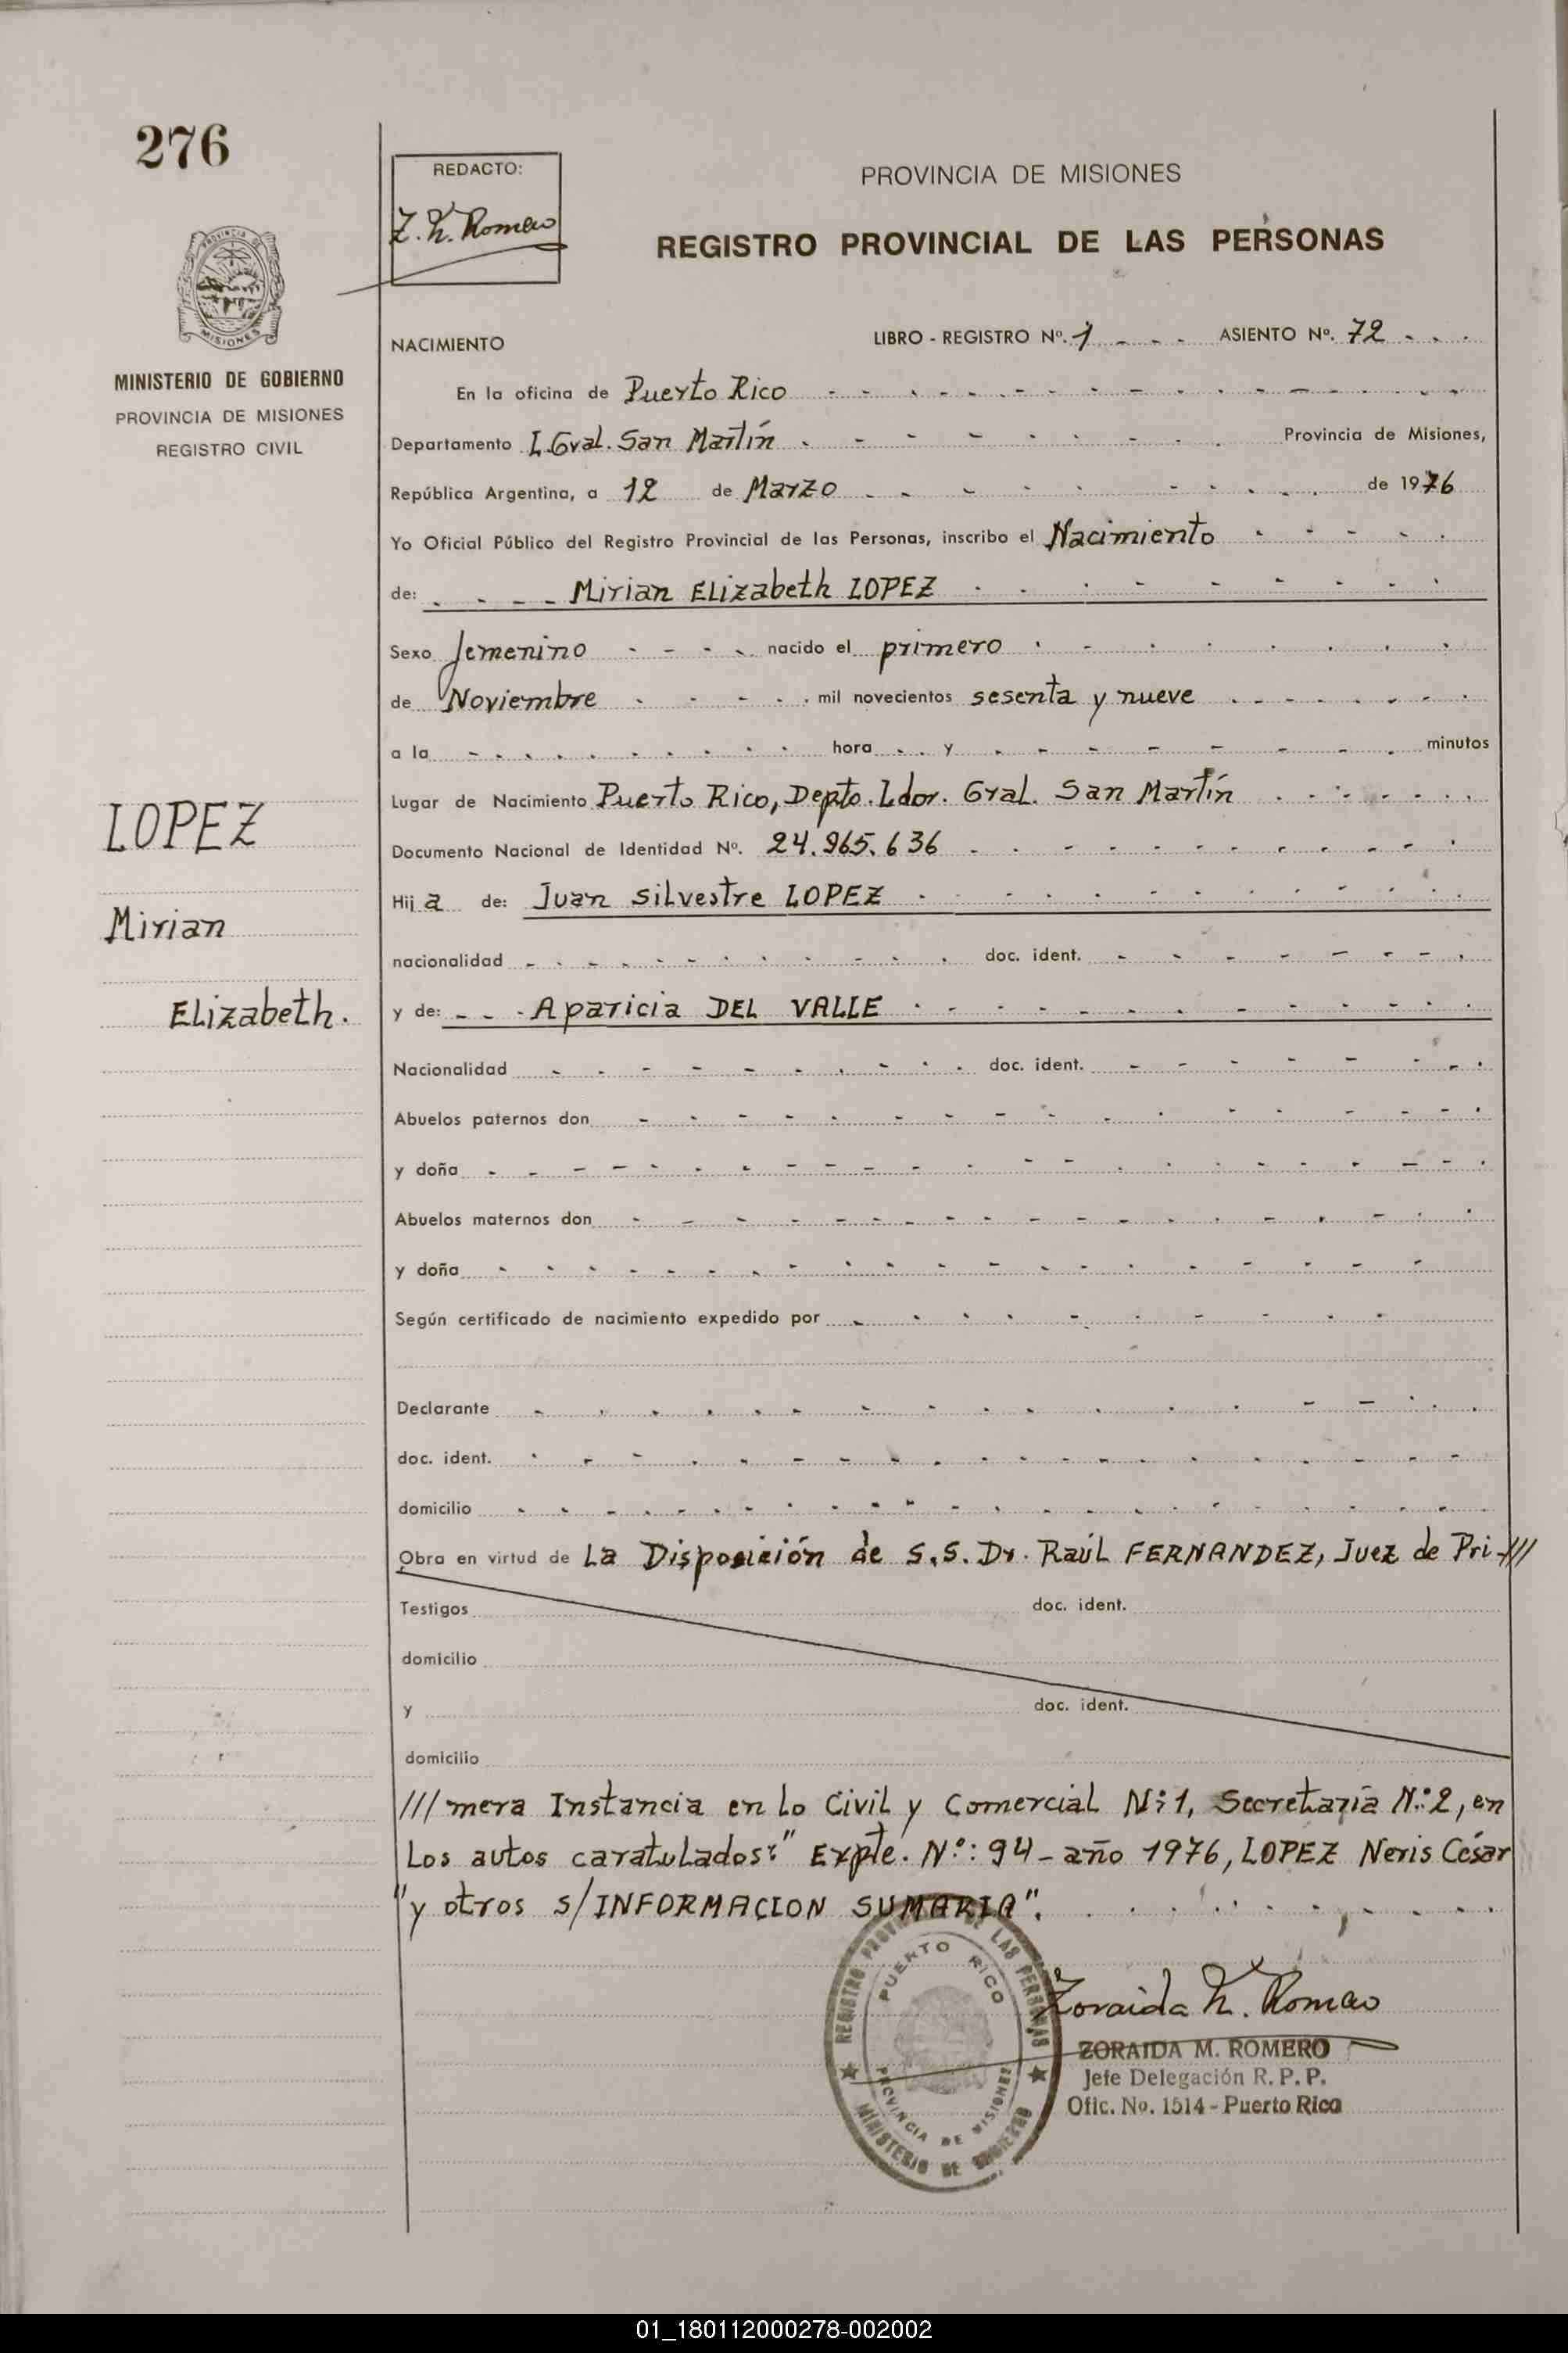 276
REDACTO:
Z. M. Romero
PROVINCIA DE MISIONES
REGISTRO PROVINCIAL DE LAS PERSONAS
PROVINCIA DE
MISIONES
MINISTERIO DE GOBIERNO
PROVINCIA DE MISIONES
REGISTRO CIVIL
NACIMIENTO LIBRO - REGISTRO Nº. 1 ASIENTO Nº. 72
En la oficina de Puerto Rico
Departamento L. Gral. San Martín Provincia de Misiones,
República Argentina, a 12 de Marzo de 1976
Yo Oficial Público del Registro Provincial de las Personas, inscribo el Nacimiento
de: Mirian Elizabeth LOPEZ
Sexo femenino nacido el primero
de Noviembre mil novecientos sesenta y nueve
a la hora y minutos
Lugar de Nacimiento Puerto Rico, Depto. Ldor. Gral. San Martín
Documento Nacional de Identidad Nº. 24.965.636
Hij a de: Juan Silvestre LOPEZ
nacionalidad doc. ident.
y de: Aparicia DEL VALLE
Nacionalidad doc. ident.
Abuelos paternos don
y doña
Abuelos maternos don
y doña
Según certificado de nacimiento expedido por
Declarante
doc. ident.
domicilio
Obra en virtud de La Disposición de S.S. Dr. Raúl FERNANDEZ, Juez de Pri-///
Testigos doc. ident.
domicilio
y doc. ident.
domicilio
///mera Instancia en lo Civil y Comercial Nº:1, Secretaría N.º:2, en
Los autos caratulados:" Expte. Nº.: 94-año 1976, LOPEZ Neris César
"y otros s/INFORMACION SUMARIA".
LOPEZ
Mirian
Elizabeth.
REGISTRO PROVINCIAL DE LAS PERSONAS
PUERTO RICO
PROVINCIA DE MISIONES
MINISTERIO DE GOBIERNO
Zoraida M. Romero
ZORAIDA M. ROMERO
Jefe Delegación R. P. P.
Ofic. No. 1514 - Puerto Rico
01_180112000278-002002